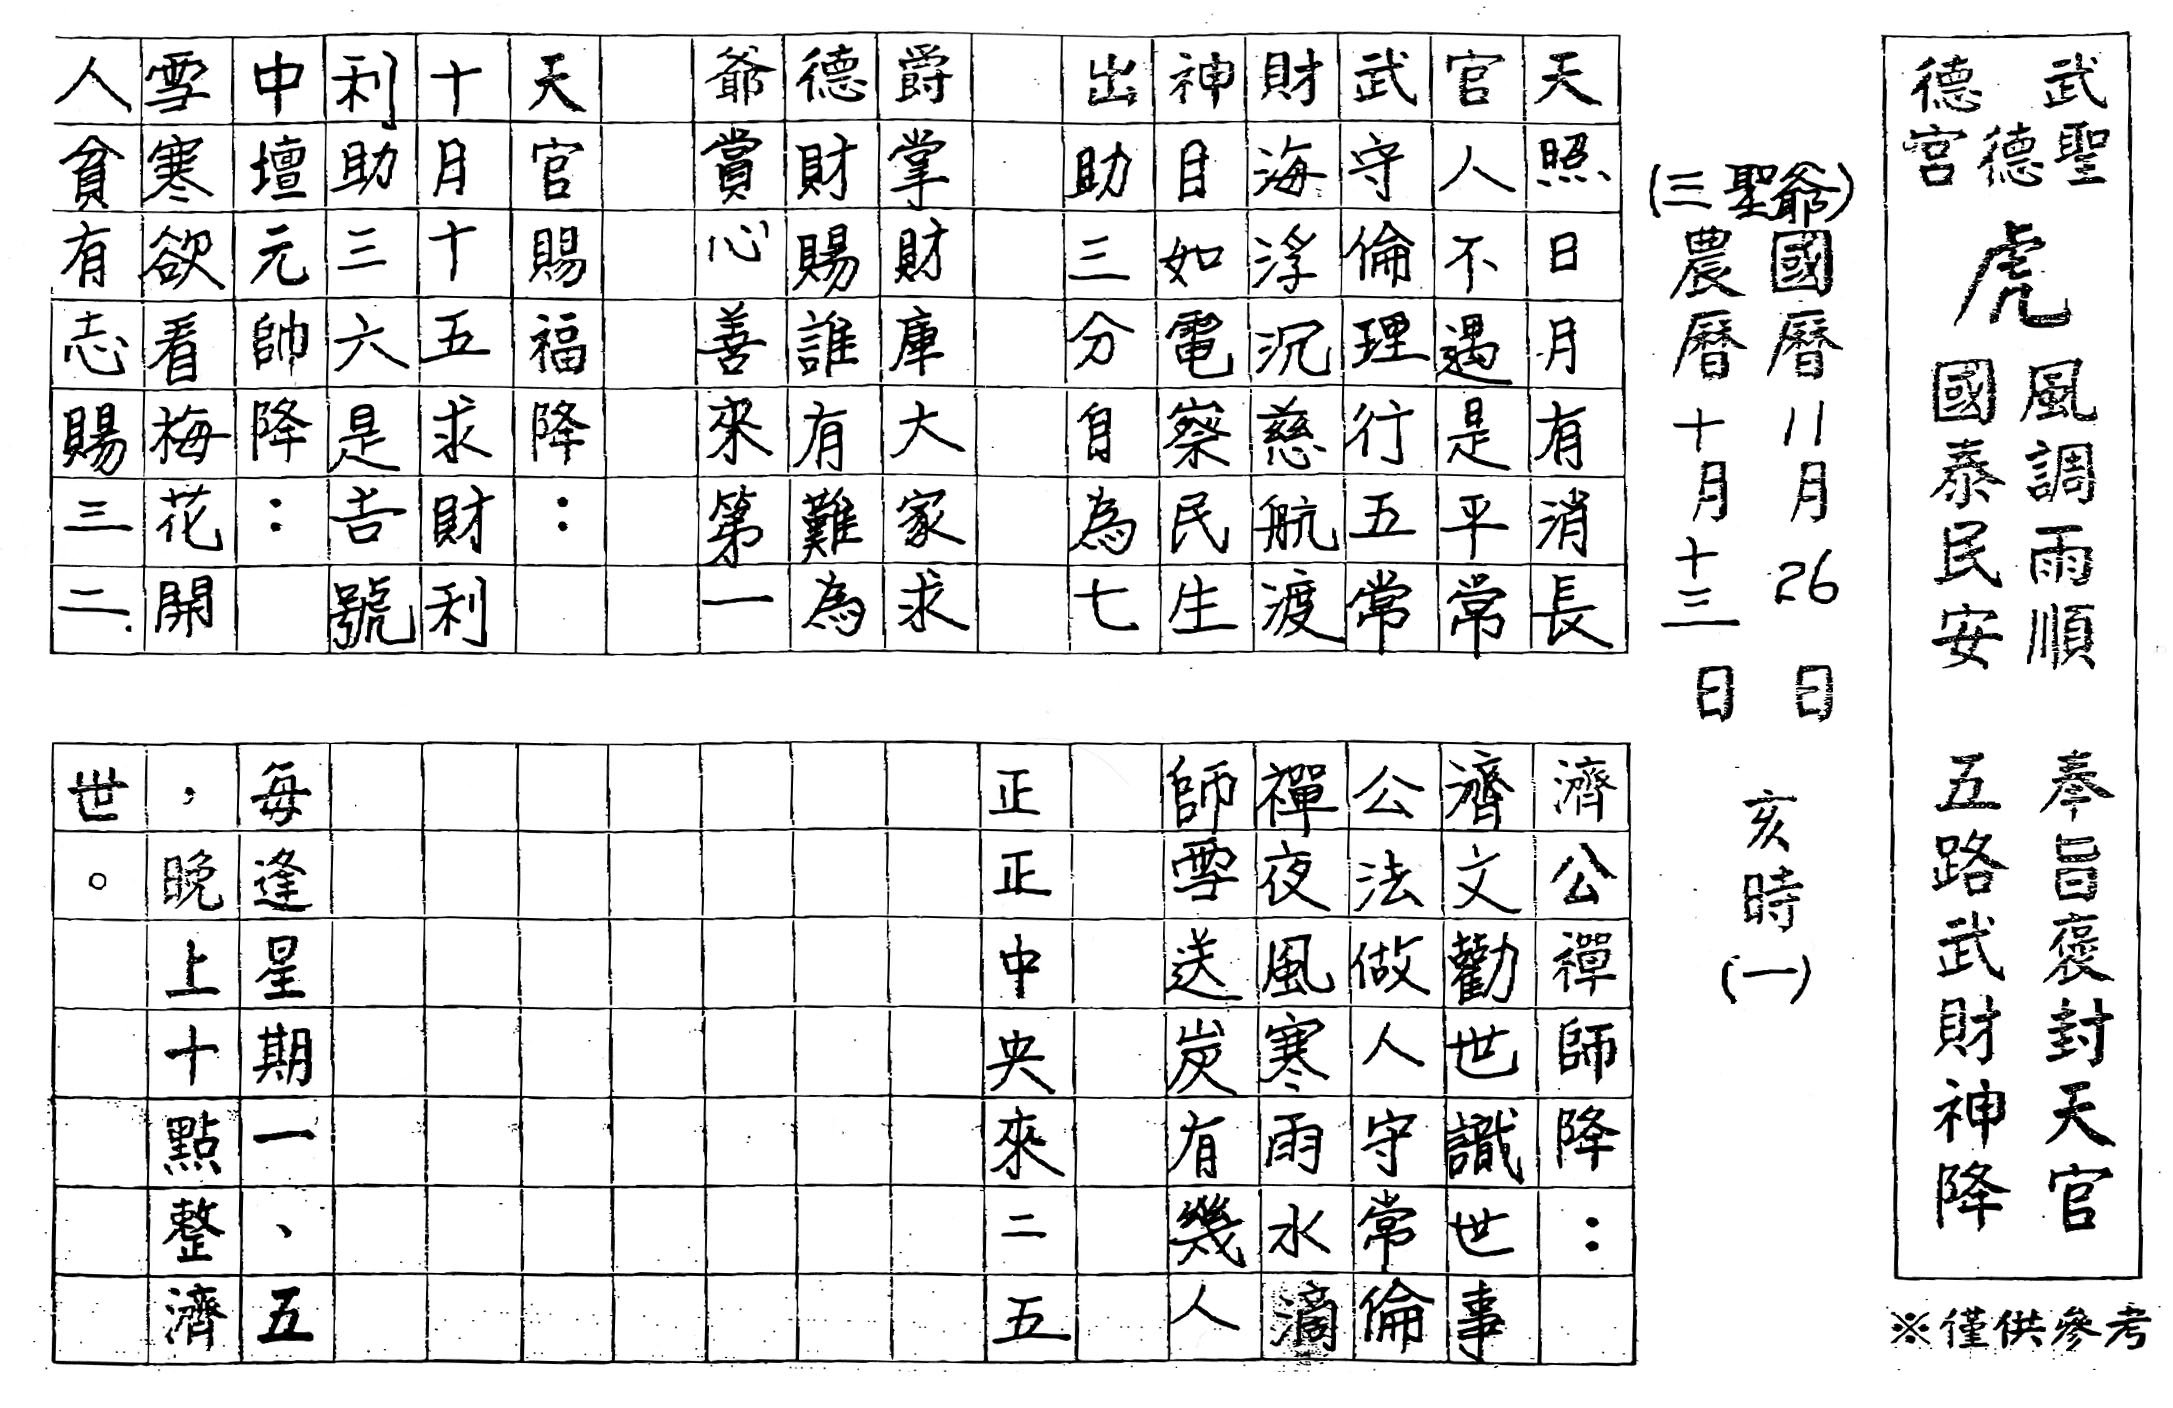 武聖德德宮
虎
風調雨順
國泰民安
奉旨褒封天官
五路武財神降
※僅供參考
(三聖爺)
國曆11月26日
農曆十月十三日
亥時(一)
天照日月有消長
官人不遇是平常
武守倫理行五常
財海浮沉慈航渡
神目如電察民生
出助三分自為七
爵掌財庫大家求
德財賜誰有難為
爺賞心善來第一
天官賜福降：
十月十五求財利
利助三六是吉號
中壇元帥降：
雪寒欲看梅花開
人貧有志賜三二.
濟公禪師降：
濟文勸世識世事
公法做人守常倫
禪夜風寒雨水滴
師雪送炭有幾人
正正中央來二五
每逢星期一、五
，晚上十點整濟
世。